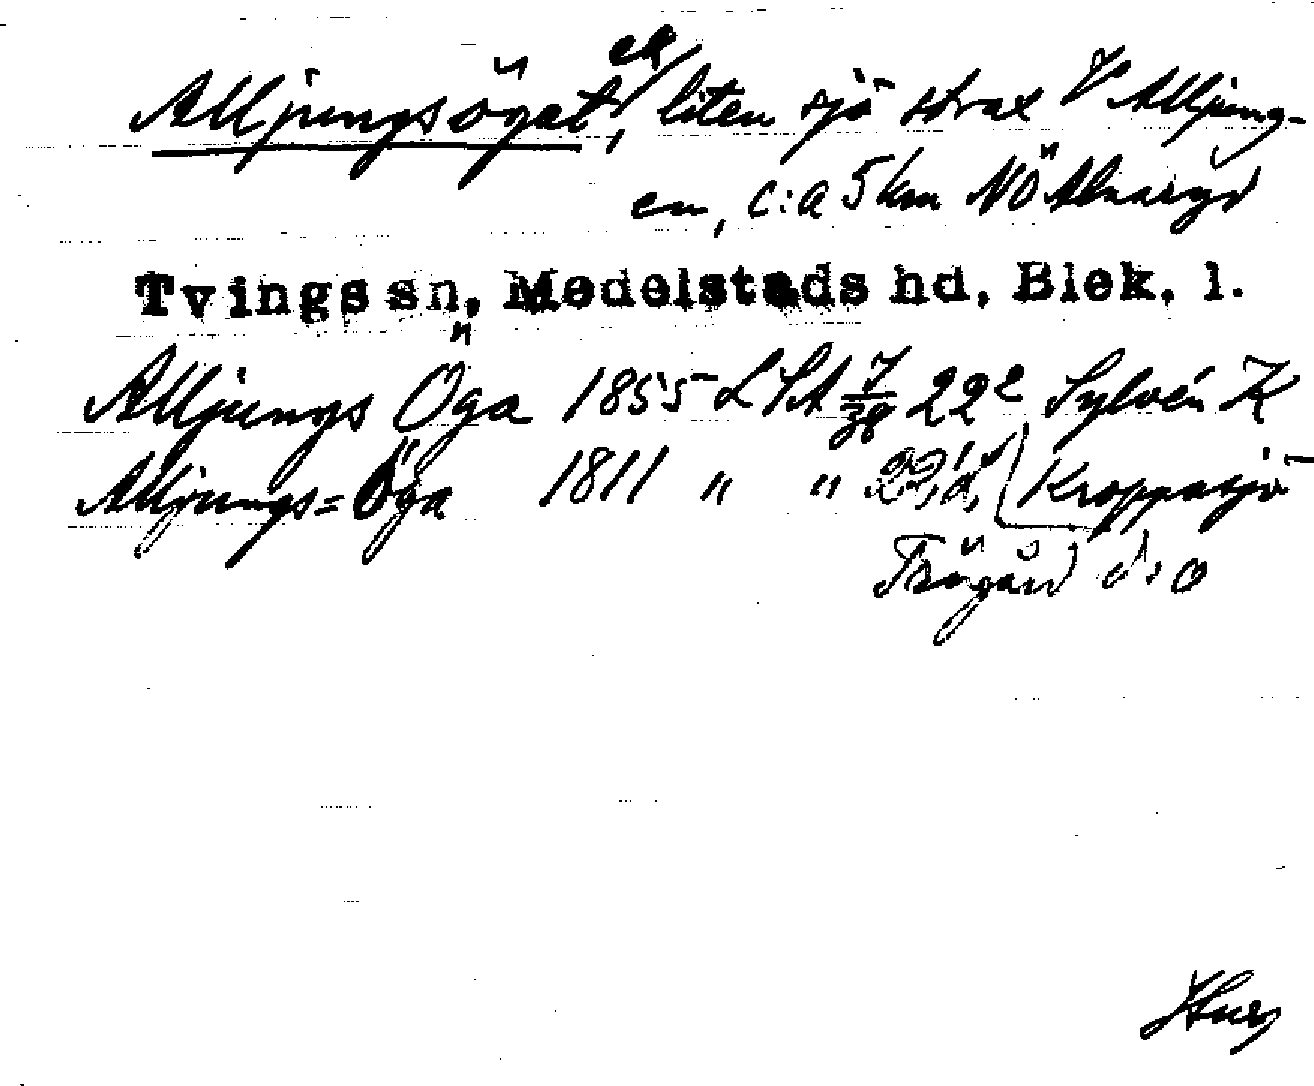 Alljungsögat, ek/ liten sjö strax V Alljung-
en, c:a 5 km NÖ Alnaryd
Tvings sn, Medelstads hd, Blek. l.
Alljungs Öga 1855 LSA 7/38 22² Sylvén K
Alljungs=Öga 1811 " " 22, d, Kroppasjö-
Trögård d:o